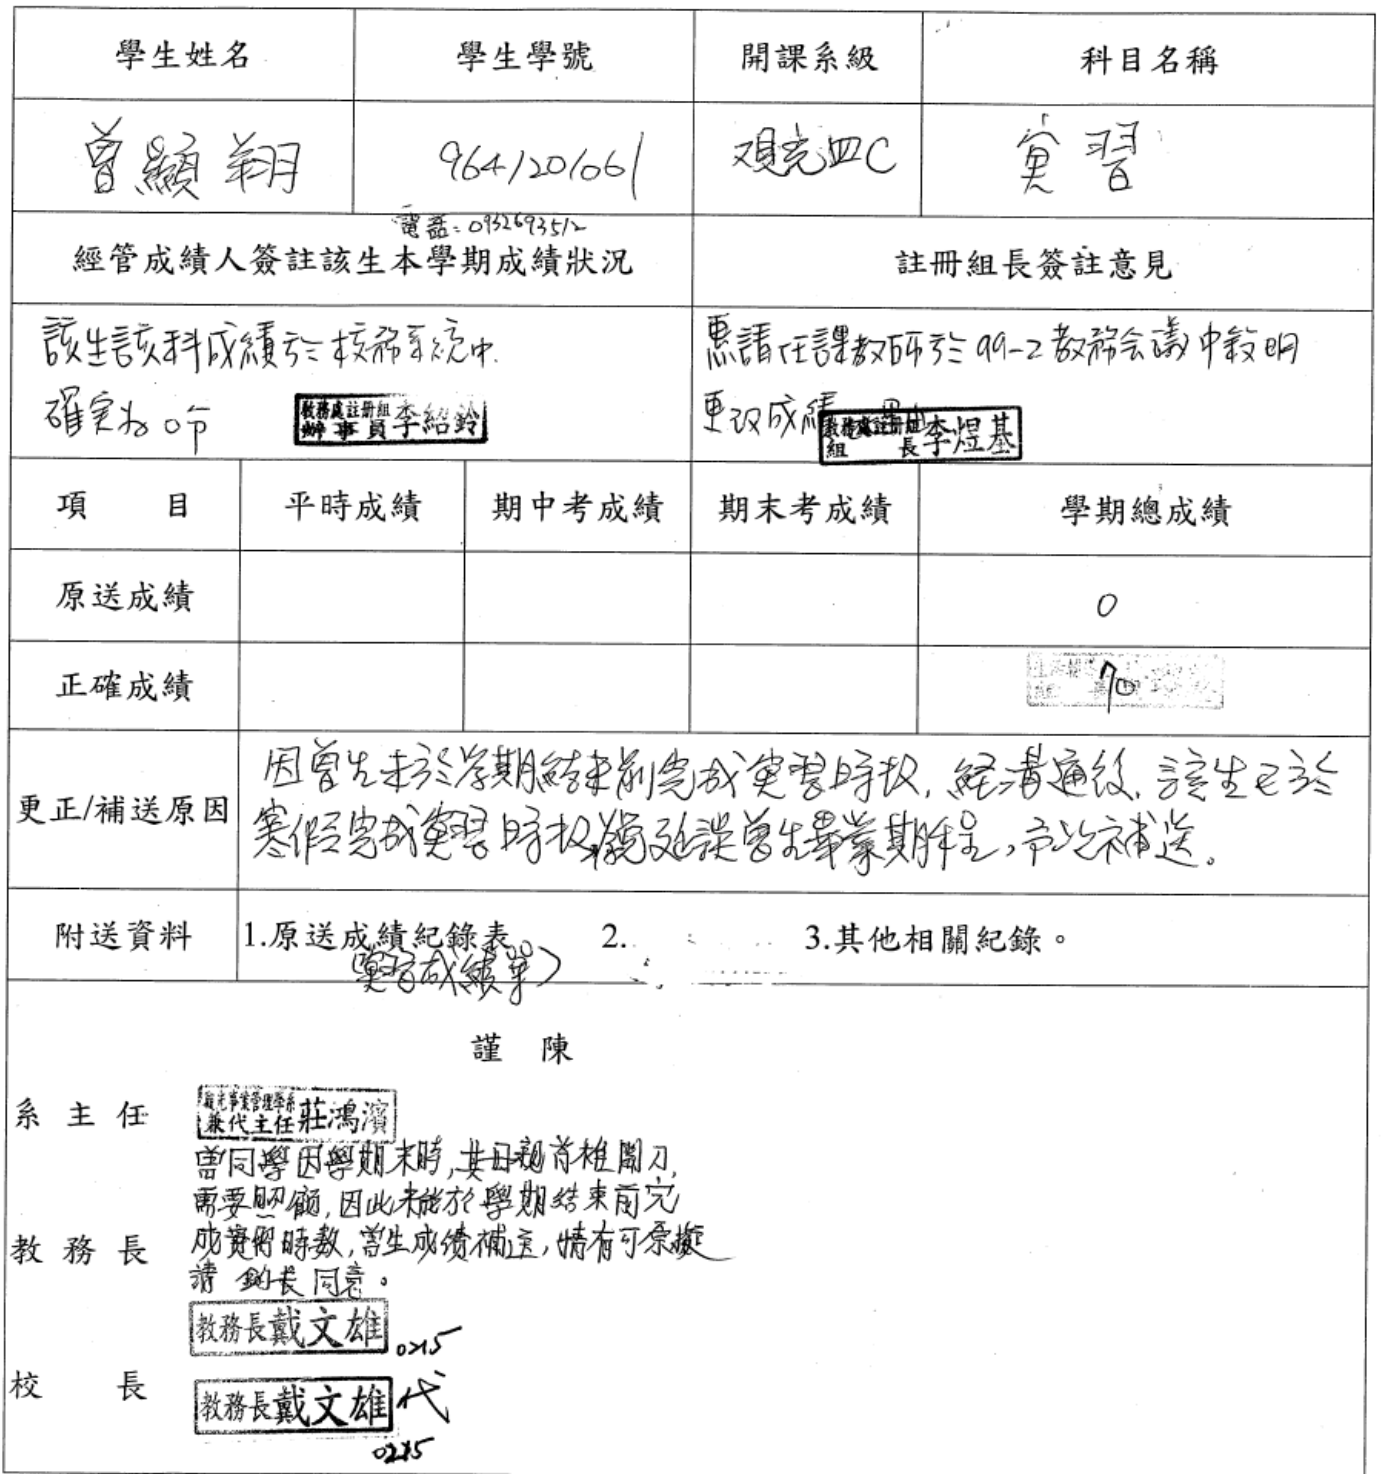 學生姓名 學生學號 開課系級 科目名稱
曾顯翔 964120161 觀光四C 實習
電話:0932693512
經管成績人簽註該生本學期成績狀況 註冊組長簽註意見
該生該科成績於校務系統中
確実為0分
教務處註冊組
辦事員李紹鈴
惠請任課教師於99-2教務会議中敘明
更改成績
教務處註冊組
組長李煜基
項目 平時成績 期中考成績 期末考成績 學期總成績
原送成績 0
正確成績 70
更正/補送原因
因曾生未於学期結束前完成實習時数,經溝通後,該生已於
寒假完成實習時数,避免延誤曾生畢業期程,
補送。
附送資料 1.原送成績紀錄表 2. 3.其他相關紀錄。
(實習成績單)
謹陳
系主任
觀光事業管理學系
兼代主任莊鴻濱
曾同學因學期末時,其母親脊椎開刀,
需要照顧,因此未能於學期結束前完
成實習時數,曾生成績補送,情有可原擬
請 鈞長同意。
教務長
教務長戴文雄
0215
校長
教務長戴文雄 代
0215